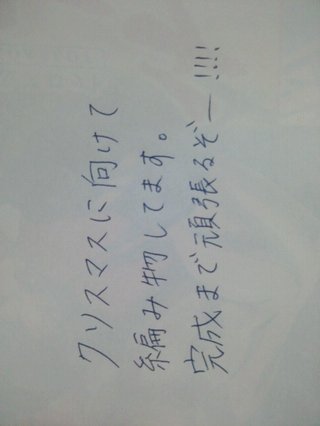 クリスマスに向けて
編み物してます。
完成まで頑張るぞー!!!!